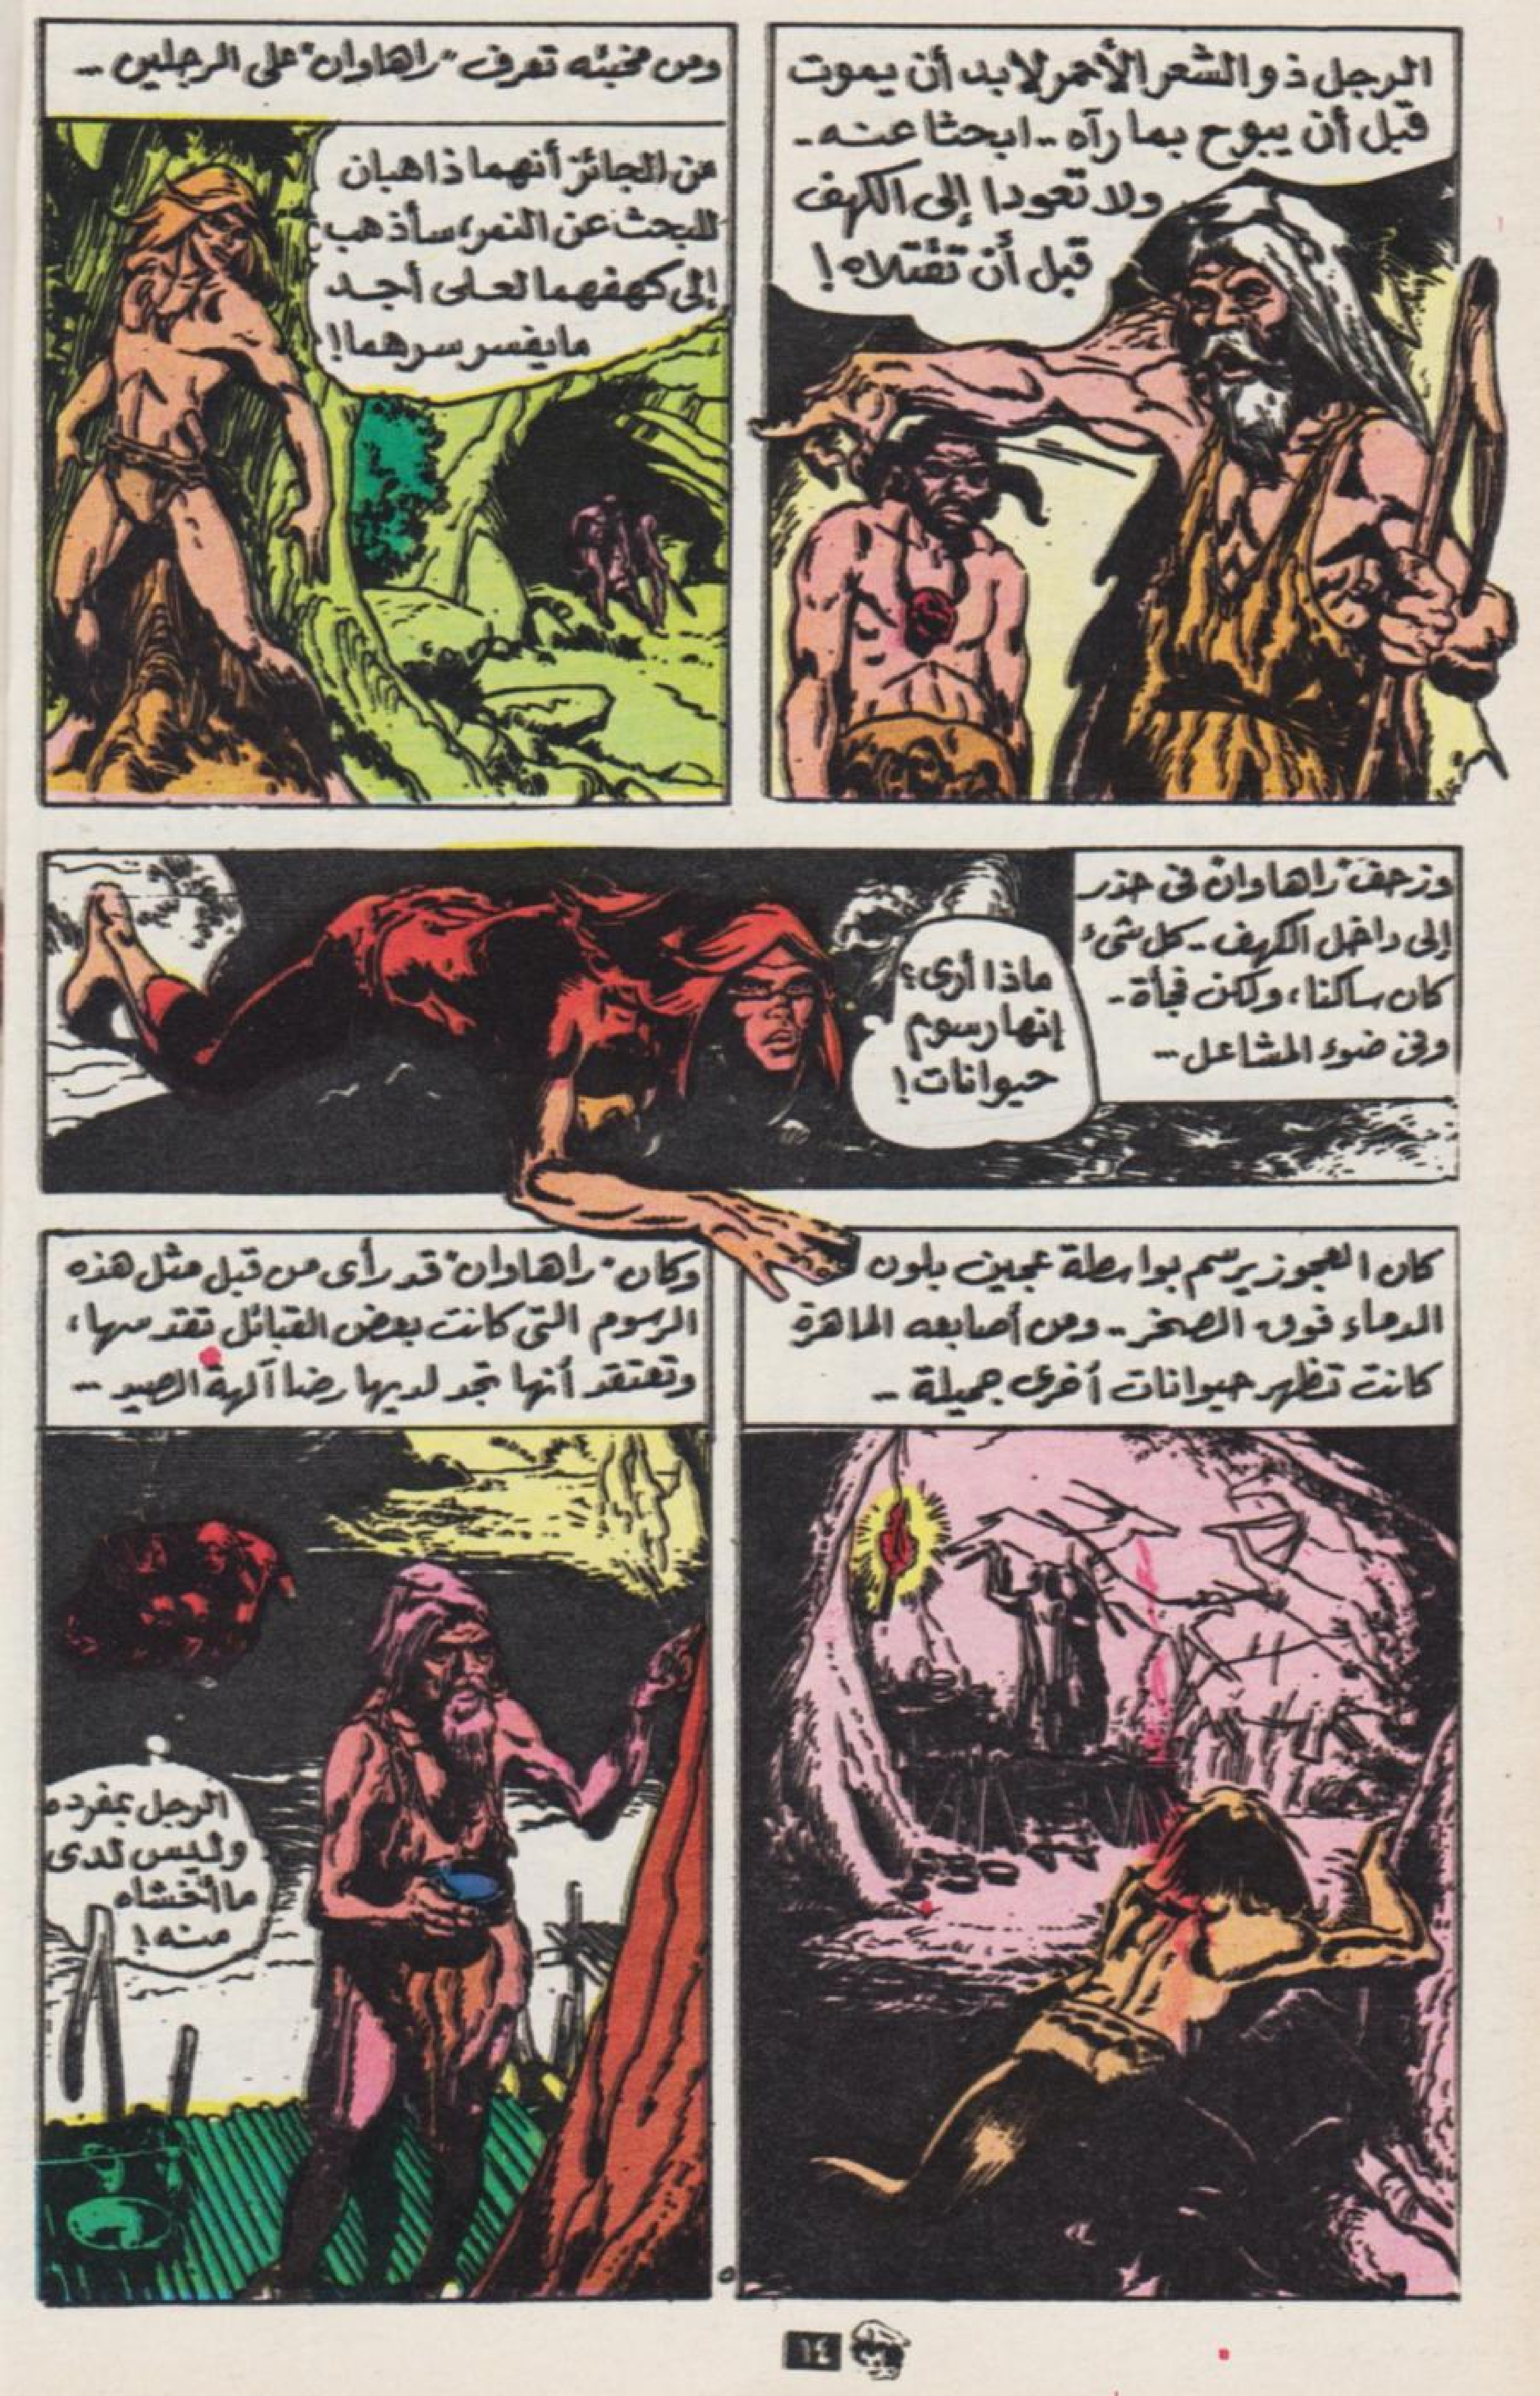 الرجل ذو الشعر الأحمر لابد أن يموت
قبل أن يبوح بما رآه .. ابحثا عنه ..
ولا تعودا إلى الكهف
قبل أن تقتلاه !
ومن مخبئه تعرف "راهاوان" على الرجلين ..
من الجائز أنهما ذاهبان
للبحث عن النمر، سأذهب
إلى كهفهما لعلى أجد
مايفسر سرهما !
وزحف "راهاوان" فى حذر
إلى داخل الكهف .. كل شىء
كان ساكنا، ولكن فجأة ..
وفى ضوء المشاعل ...
ماذا أرى؟
إنها رسوم
حيوانات !
كان العجوز يرسم بواسطة عجين بلون
الدماء فوق الصخر .. ومن أصابعه الماهرة
كانت تظهر حيوانات أخرى جميلة ..
وكان "راهاوان" قد رأى من قبل مثل هذه
الرسوم التى كانت بعض القبائل تقدسها،
وتعتقد أنها تجد لديها رضا آلهة الصيد ..
الرجل بمفرده
وليس لدى
ما أخشاه
منه !
١٤